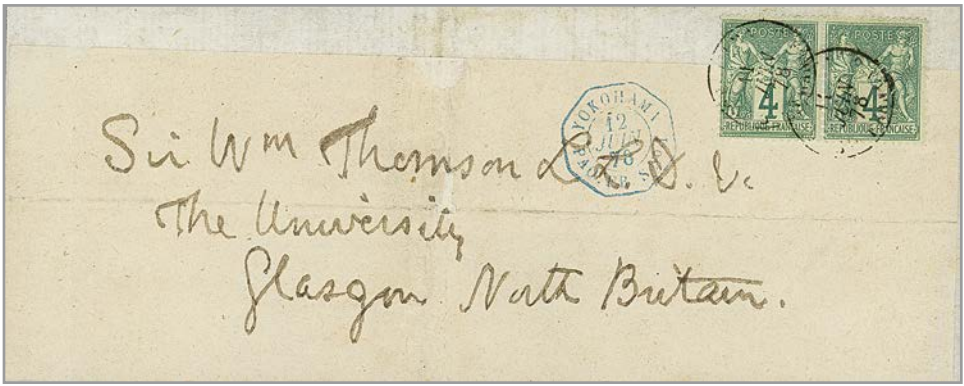 POSTE POSTE
4 4
REPUBLIQUE FRANCAISE REPUBLIQUE FRANCAISE
YOKOHAMA
12
JUIN
78
Sir Wm Thomson L. L. D. &c.
The University
Glasgow North Britain.